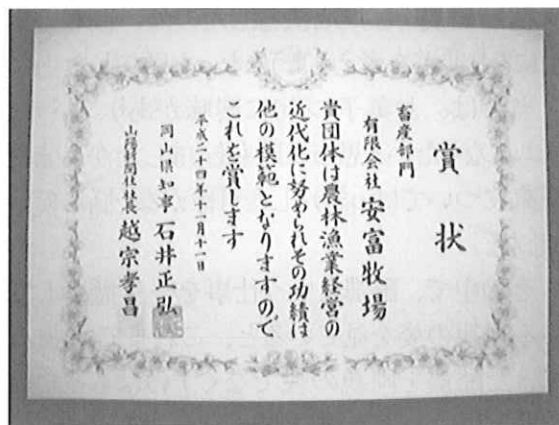 賞状
畜産部門
有限会社 安富牧場
貴団体は農林漁業経営の
近代化に努められその功績は
他の模範となりますので
これを賞します
平成二十四年十一月十一日
岡山県知事 石井正弘
山陽新聞社社長 越宗孝昌